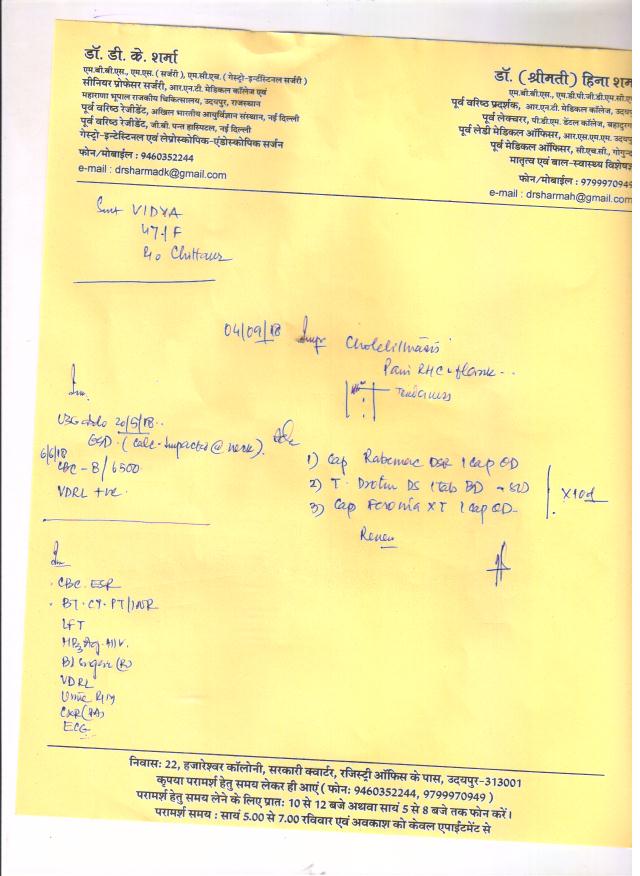 डॉ. डी. के. शर्मा
एम.बी.बी.एस., एम.एस. ( सर्जरी ), एम.सी.एच. ( गेस्ट्रो-इन्टेस्टिनल सर्जरी )
सीनियर प्रोफेसर सर्जरी, आर.एन.टी. मेडिकल कॉलेज एवं
महाराणा भूपाल राजकीय चिकित्सालय, उदयपुर, राजस्थान
पूर्व वरिष्ठ रेजीडेंट, अखिल भारतीय आयुर्विज्ञान संस्थान, नई दिल्ली
पूर्व वरिष्ठ रेजीडेंट, जी.बी. पन्त हास्पिटल, नई दिल्ली
गेस्ट्रो-इन्टेस्टिनल एवं लेप्रोस्कोपिक-एंडोस्कोपिक सर्जन
फोन/मोबाईल : 9460352244
e-mail : drsharmadk@gmail.com
डॉ. (श्रीमती) हिना शर्म
एम.बी.बी.एस., एम.डी.पी.जी.डी.एम.सी.ए
पूर्व वरिष्ठ प्रदर्शक, आर.एन.टी. मेडिकल कॉलेज, उदय
पूर्व लेक्चरर, पी.डी.एम. डेंटल कॉलेज, बहादुरग
पूर्व लेडी मेडिकल ऑफिसर, आर.एस.एम.एम. उदयपु
पूर्व मेडिकल ऑफिसर, सी.एच.सी., गोगुन्द
मातृत्व एवं बाल-स्वास्थ्य विशेषज्ञ
फोन/मोबाईल : 9799970949
e-mail : drsharmah@gmail.com
Smt VIDYA
47/F
R/o Chittaur
04/09/18 Cholelithiasis
Pain RHC + flank
Tenderness
Inv.
USG abdo 20/5/18
GSD. (calc. impacted @ neck).
6/6/18
CBC - 8/6500
VDRL +ve
1) Cap DSR 1 cap OD
2) T. Drotin DS 1 tab BD
3) Cap XT 1 cap OD
X 10d
Review
CBC ESR
BT. CT. PT/INR
LFT
HIV.
Bl Sugar (R)
VDRL
Urine
CXR (PA)
ECG
निवास: 22, हजारेश्वर कॉलोनी, सरकारी क्वार्टर, रजिस्ट्री ऑफिस के पास, उदयपुर-313001
कृपया परामर्श हेतु समय लेकर ही आएं ( फोन: 9460352244, 9799970949 )
परामर्श हेतु समय लेने के लिए प्रात: 10 से 12 बजे अथवा सायं 5 से 8 बजे तक फोन करें।
परामर्श समय : सायं 5.00 से 7.00 रविवार एवं अवकाश को केवल एपाईंटमेंट से